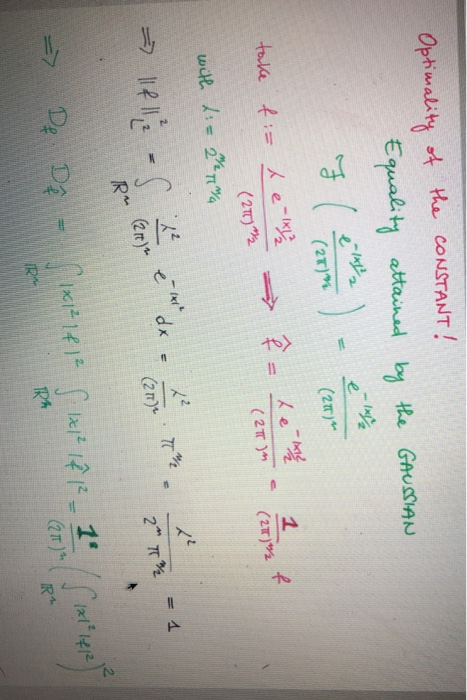 Optimality of the CONSTANT!
Equality attained by the GAUSSIAN
F ( e^{-|x|²/2} / (2π)^{n/2} ) = e^{-|x|²/2} / (2π)^n
take f := λ e^{-|x|²/2} / (2π)^{n/2} ⟹ f̂ = λ e^{-|x|²/2} / (2π)^n = 1 / (2π)^{n/2} f
with λ := 2^{n/2} π^{n/4}
⟹ ||f||²_{L²} = ∫_{ℝⁿ} λ² / (2π)^n e^{-|x|²} dx = λ² / (2π)^n · π^{n/2} = λ² / 2^n π^{n/2} = 1
⟹ D_f · D_f̂ = ∫_{ℝⁿ} |x|² |f|² ∫_{ℝⁿ} |x|² |f̂|² = 1 / (2π)^n ( ∫_{ℝⁿ} |x|² |f|² )²